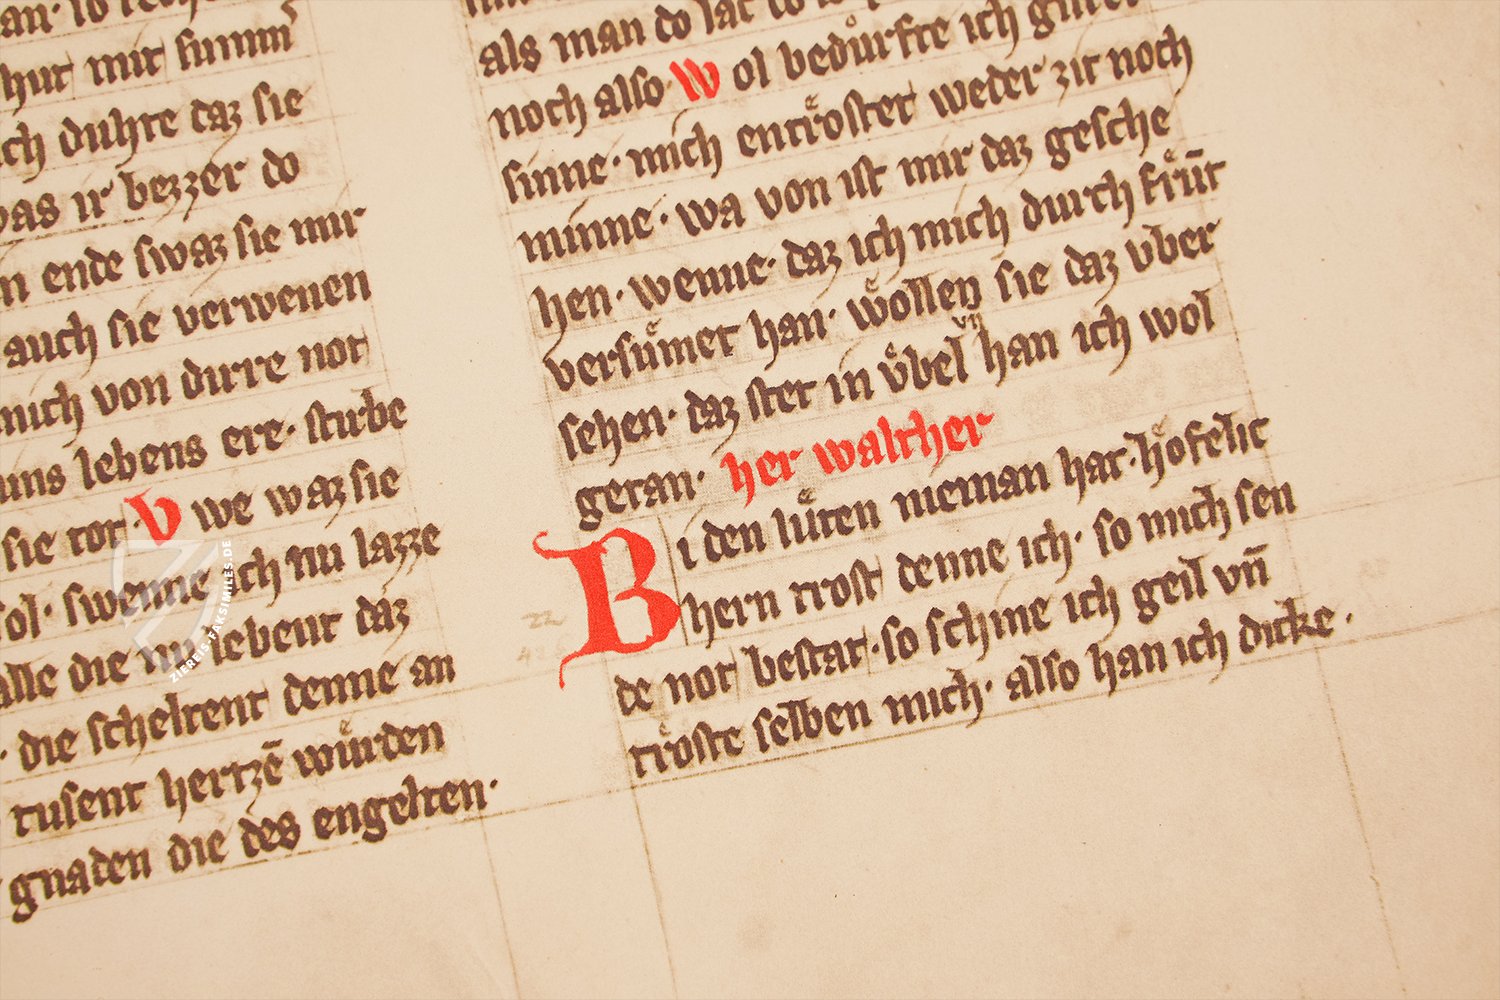 hut mir summ̄
ich duhte daz sie
was ir bezzer do
n ende swaz sie mir
auch sie verwenen
mich von dirre not
uns lebens ere · stirbe
sie tot · Vwe waz sie
sol · swenne ich nu lazze
alle die nu lebent daz
· die scheltent denne an
tusent hertzē wuͤrden
gnaden die des engelten ·
als man do
noch also Wol beduͤrfte ich guter
sinne · mich entroͤstet weder zit noch
minne · wa von ist mir daz gesche
hen · wenne · daz ich mich durch
versuͤmet han · woͤllen sie daz vber
sehen · daz stet in vͤbel vn̄ han ich wol
getan · her walther
Bi den luͤten nieman hat · hoͤfelic
hern trost denne ich · so mich sen
de not bestat · so schine ich geil vn̄
troͤste selben mich · also han ich dicke ·
22
ZIEREIS-FAKSIMILES.DE